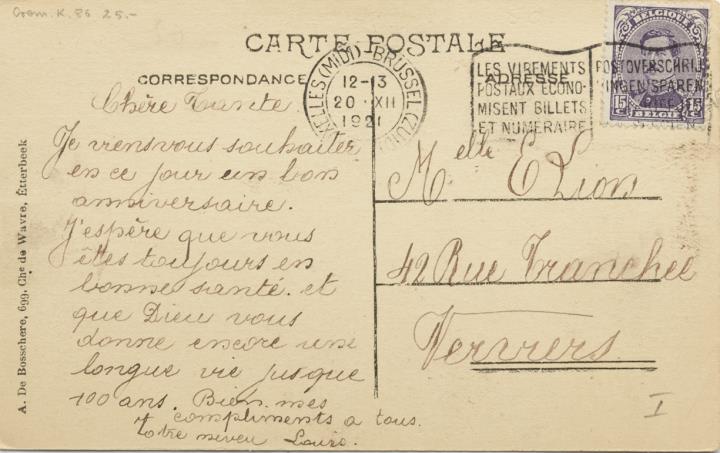 Crom. K. 86 25.-
CARTE POSTALE
CORRESPONDANCE
ADRESSE
BRUXELLES (MIDI) BRUSSEL (ZUID)
12-13
20 XII
1921
LES VIREMENTS
POSTAUX ECONO-
MISENT BILLETS
ET NUMERAIRE
POSTOVERSCHRIJ-
INGEN SPAREN
BELGIQUE
15 c 15 c
BELGIË
Chère Tante
Je viens vous souhaiter
en ce jour un bon
anniversaire.
J'espère que vous
êtes toujours en
bonne santé. et
que Dieu vous
donne encore une
longue vie jusque
100 ans. Bien mes
compliments a tous.
Votre neveu Louis.
Melle E Lion
42 Rue Tranchée
Verviers
I
A. De Bosschere, 699, Chée de Wavre, Etterbeek